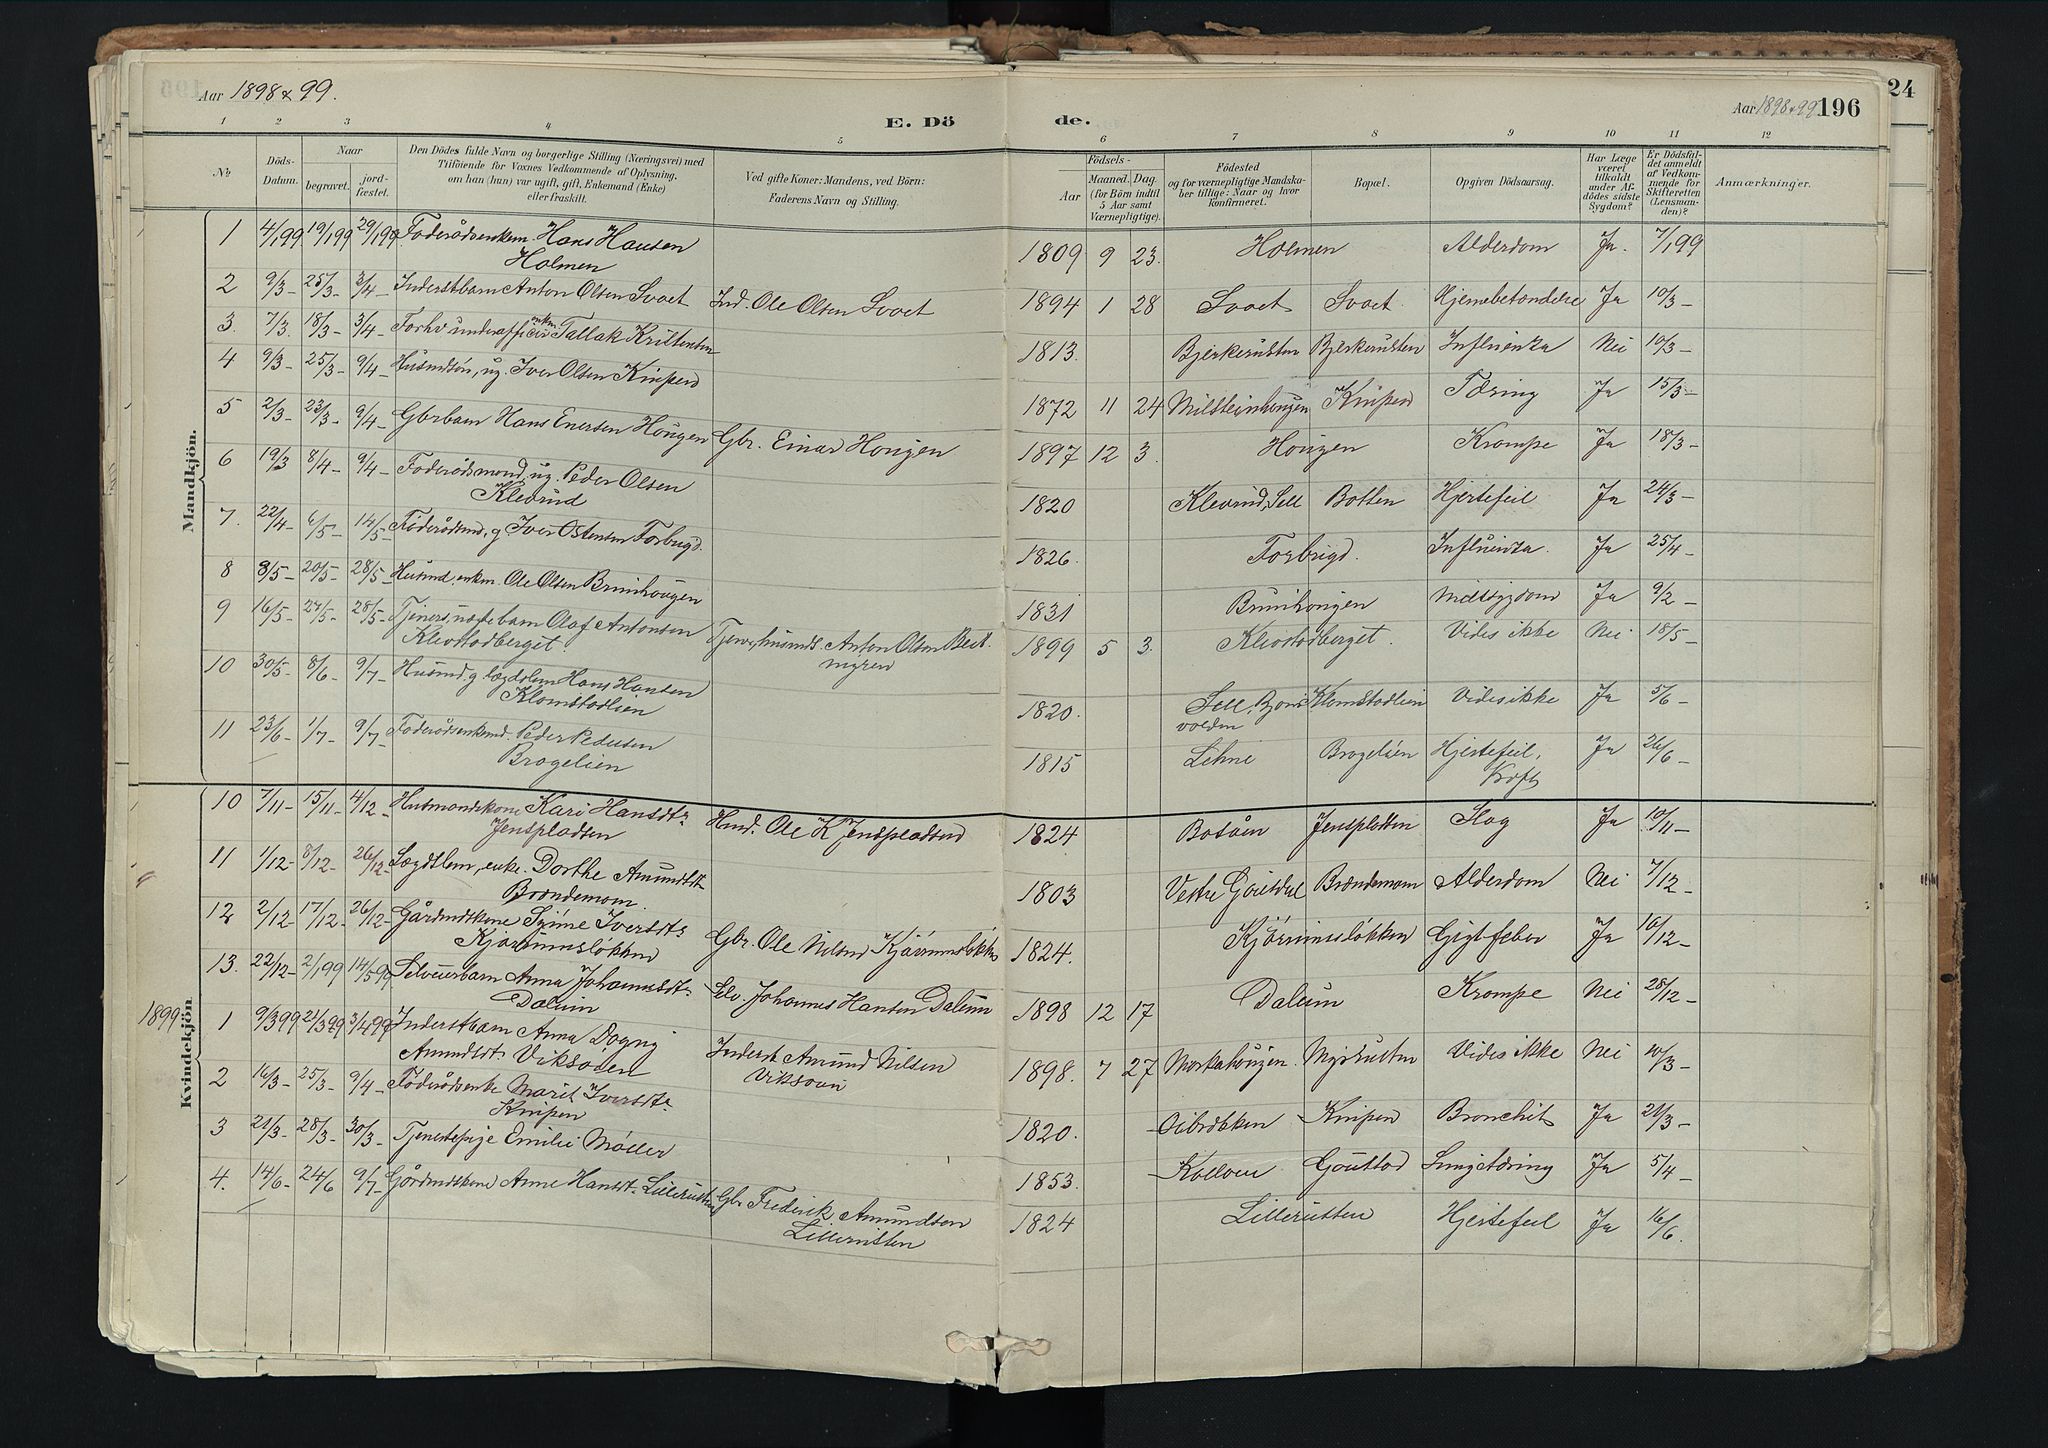 Aar 1898 & 99.
E. Döde.
Aar 1898 & 99
196
24
1 2 3 4 5 6 7 8 9 10 11 12
No
Döds-Datum.
Naar
begravet.
jord-fæstet.
Den Dödes fulde Navn og borgerlige Stilling (Næringsvei) med
Tilföiende for Voxnes Vedkommende af Oplysning,
om han (hun) var ugift, gift, Enkemand (Enke)
eller fraskilt.
Ved gifte Koner: Mandens, ved Börn:
Faderens Navn og Stilling.
Födsels-
Aar
Maaned. Dag.
(for Börn indtil
5 Aar samt
Værnepligtige).
Födested
og for værnepligtige Mandska-
ber tillige: Naar og hvor
konfirmeret.
Bopæl.
Opgiven Dödsaarsag.
Har Læge
været
tilkaldt
under Af-
dödes sidste
Sygdom?
Er Dödsfal-
det anmeldt
af Vedkom-
mende for
Skifteretten
(Lensman-
den)?
Anmærkninger.
Mandkjön.
1 4/1 99 19/1 99 29/1 99 Foderådsenkem. Hans Hansen
Holmen 1809 9 23. Holmen Alderdom Ja. 7/1 99
2 9/3 - 25/3 - 3/4 - Inderstbarn Anton Olsen Svaet Ind. Ole Olsen Svaet 1894 1 28 Svaet Svaet. Hjernebetændelse Ja 10/3 -
3. 7/3. 18/3 - 3/4 - Forhv underofficer enkm Tallak Kristensen 1813. Bjerkerusten Bjerkerusten Influenza Nei 10/3 -
4 9/3 - 25/3 - 9/4 - Husmdsøn, ug. Iver Olsen Kinpen 1872 11 24 Milsteinhougen Kinpen Tæring Ja 15/3 -
5 2/3 - 23/3 - 9/4 - Gbrbarn Hans Enersen Hougen Gbr. Einar Hougen 1897 12 3. Hougen Krampe Ja 18/3 -
6 19/3 8/4 - 9/4 - Foderådsmand, ug. Peder Olsen
Klevrud 1820 Klevrud, Sell Botten Hjertefeil Ja 24/3 -
7. 22/4 - 6/5 - 14/5 - Föderådsmd, g Iver Ostensen Forbrigd. 1826. Forbrigd. Influenza. Ja 25/4 -
8 8/5 - 20/5 - 28/5 - Husmd. enkm. Ole Olsen Brunhougen 1831 Brunhougen Ja 9/2 -
9 16/5 - 27/5 - 28/5 - Tjeners, uægte barn Olaf Antonsen
Klevstadberget. Anton Olsen 1899 5 3. Klevstadberget. Vides ikke Nei 18/5 -
10 30/5 - 8/6 - 9/7 - Husmd. g lægdslem Hans Hansen
Klomstadlien 1820. Sell, Klomstadlien Vides ikke Ja 5/6 -
11 23/6 - 1/7 - 9/7 - Foderådsenkemd. Peder Pedersen
Brogelien 1815 Lihne Brogelien Hjertefeil, Ja 26/6 -
Kræft
Kvindekjön.
10 7/11 - 15/11 - 4/12 - Husmandskone Kari Hansdtr
Jenspladsen Hmd. Ole K Jenspladsen 1824 Bosåen Jenspladsen Slag Ja 10/11 -
11 1/12 - 8/12 - 26/12 - Lægdslem, enke. Dorthe Amundsdtr
Brændemoen. 1803 Vestre Gousdal Brændemoen Alderdom Nei 7/12 -
12 2/12 - 17/12 - 26/12 - Gårdmdskone Synne Iversdtr
Kjørumsløkken Gbr. Ole Nilsen Kjørumsløkken 1824. Kjørumsløkken Gigtfeber Ja 10/12 -
13. 22/12 - 2/1 99 14/5 99 Selveierbarn Anna Johannesdtr
Dalum Selv. Johannes Hansen Dalum 1898 12 17 Dalum Krampe Nei 28/12 -
1899
1 9/3 99 21/3 99 3/4 99 Inderstbarn Anna Dagny
Amundsdtr. Viksaaen Inderst Amund Nilsen
Viksaaen 1898. 7 27 Morkahougen Myrrusten Vides ikke Nei 10/3 -
2 16/3 - 25/3 - 9/4 - Föderådsenke Marit Iversdtr.
Kinpen 1820. Oibrækken Kinpen Bronchit Ja 21/3 -
3 21/3 - 28/3 - 30/3 - Tjenestepige Emilie Møller 1853. Goustad Lungetæring Ja 5/4 -
4. 14/6 - 24/6 9/7 - Gårdmdskone Anne Hansdtr. Lillerusten Gbr Frederik Amundsen
Lillerusten 1824 Lillerusten Hjertefeil Ja 16/6.